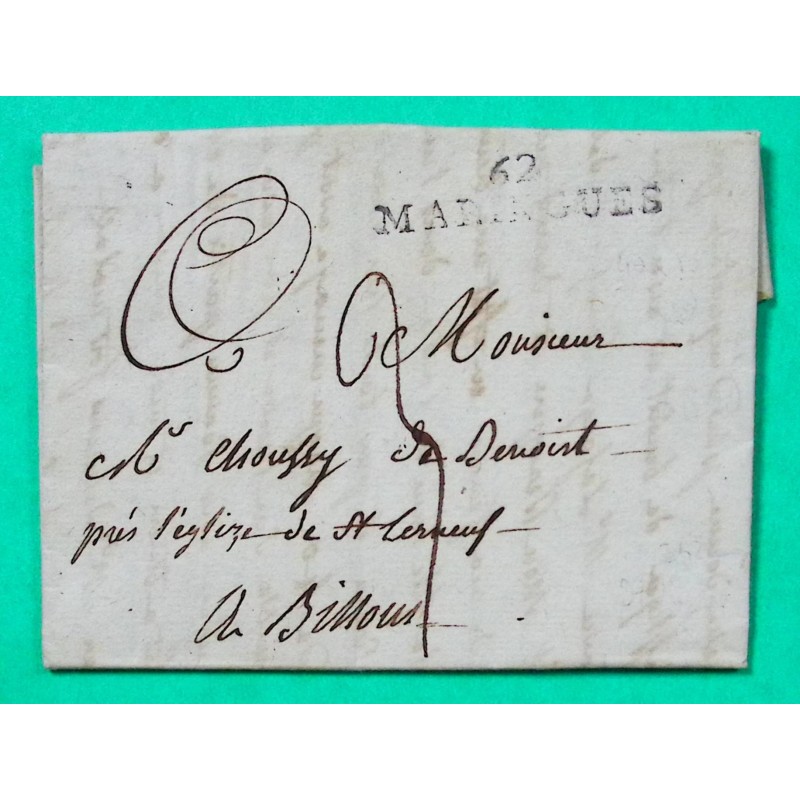 62
MARINGUES
Monsieur
Mr choussy de Benoist
prés l'églize de St Cerneuf
A Billom